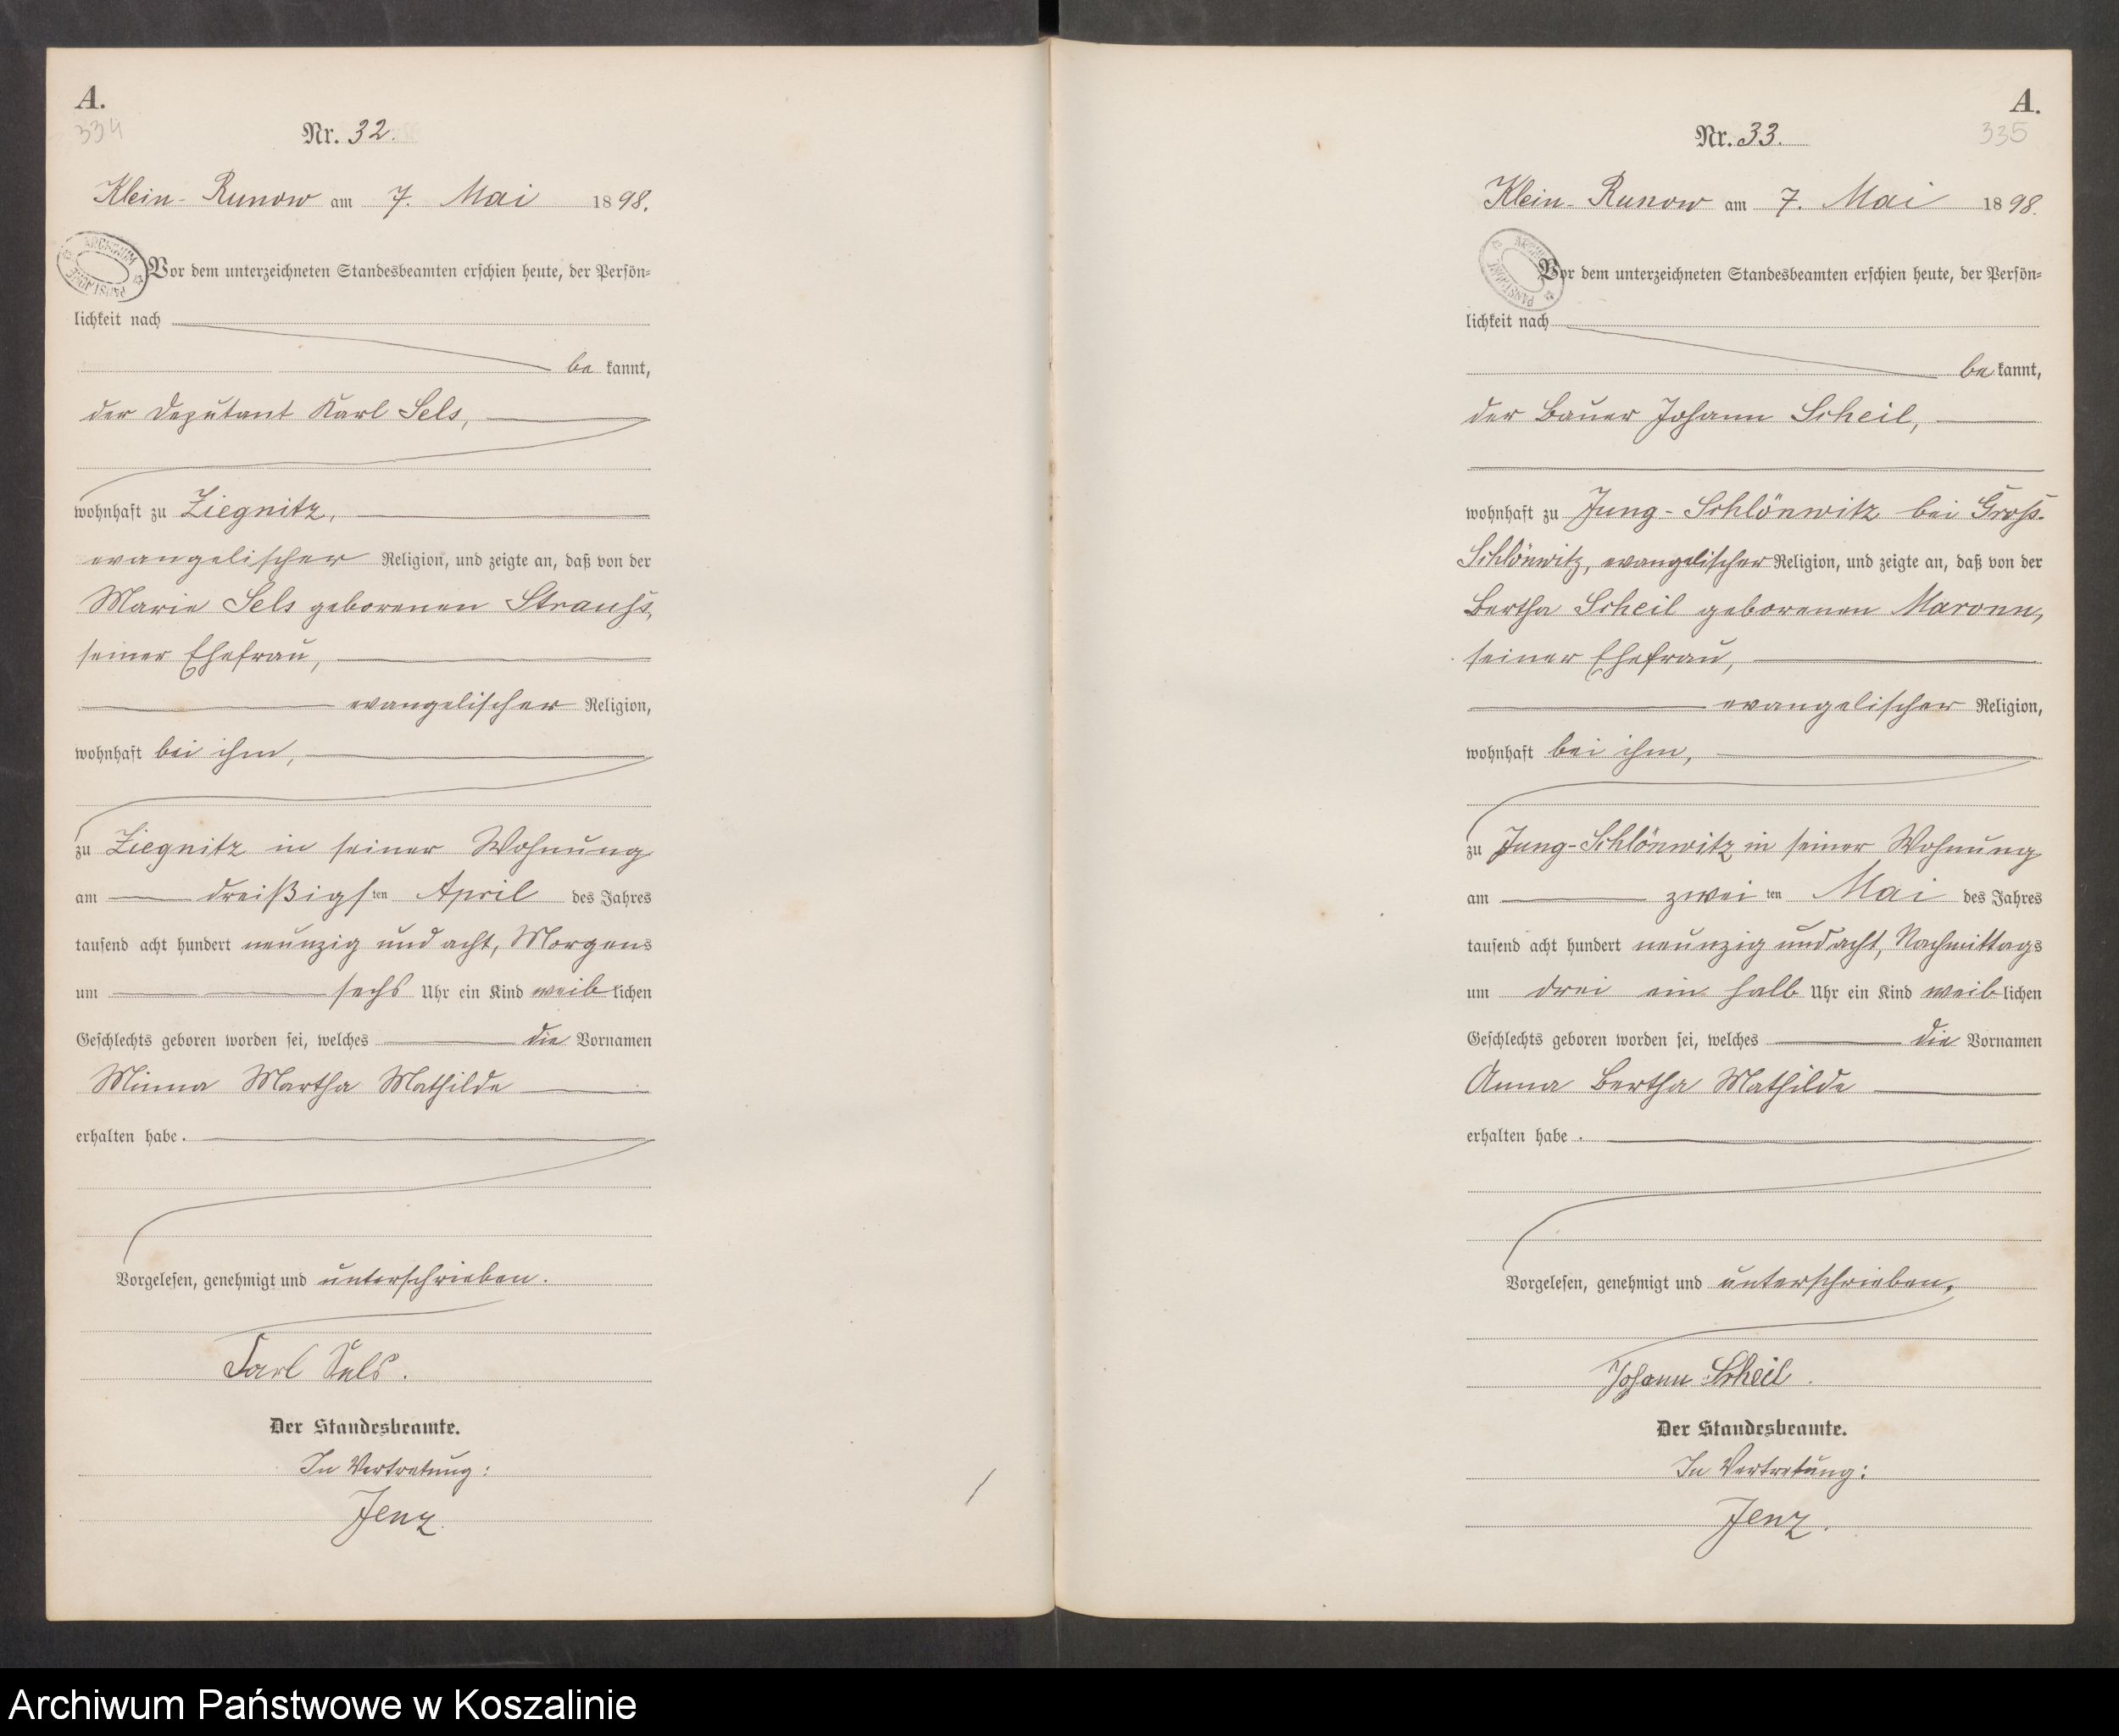 A.
334
Nr. 32.
Klein-Runow am 7. Mai 1898.
ARCHIWUM PAŃSTWOWE
Vor dem unterzeichneten Standesbeamten erschien heute, der Persön-
lichkeit nach
be kannt,
der Deputant Karl Sels,
wohnhaft zu Ziegnitz,
evangelischer Religion, und zeigte an, daß von der
Marie Sels geborenen Strauß,
seiner Ehefrau,
evangelischer Religion,
wohnhaft bei ihm,
zu Ziegnitz in seiner Wohnung
am dreißigsten April des Jahres
tausend acht hundert neunzig und acht, Morgens
um sechs Uhr ein Kind weiblichen
Geschlechts geboren worden sei, welches die Vornamen
Minna Martha Mathilde
erhalten habe.
Vorgelesen, genehmigt und unterschrieben.
Carl Sels.
Der Standesbeamte.
In Vertretung:
Jenz.
A.
335
Nr. 33.
Klein-Runow am 7. Mai 1898.
Vor dem unterzeichneten Standesbeamten erschien heute, der Persön-
lichkeit nach
be kannt,
der Bauer Johann Scheil,
wohnhaft zu Jung-Schlönwitz bei Groß-
Schlönwitz, evangelischer Religion, und zeigte an, daß von der
Bertha Scheil geborenen Maronn,
seiner Ehefrau,
evangelischer Religion,
wohnhaft bei ihm,
zu Jung-Schlönwitz in seiner Wohnung
am zweiten Mai des Jahres
tausend acht hundert neunzig und acht, Nachmittags
um drei ein halb Uhr ein Kind weiblichen
Geschlechts geboren worden sei, welches die Vornamen
Anna Bertha Mathilde
erhalten habe.
Vorgelesen, genehmigt und unterschrieben.
Johann Scheil.
Der Standesbeamte.
In Vertretung:
Jenz.
Archiwum Państwowe w Koszalinie